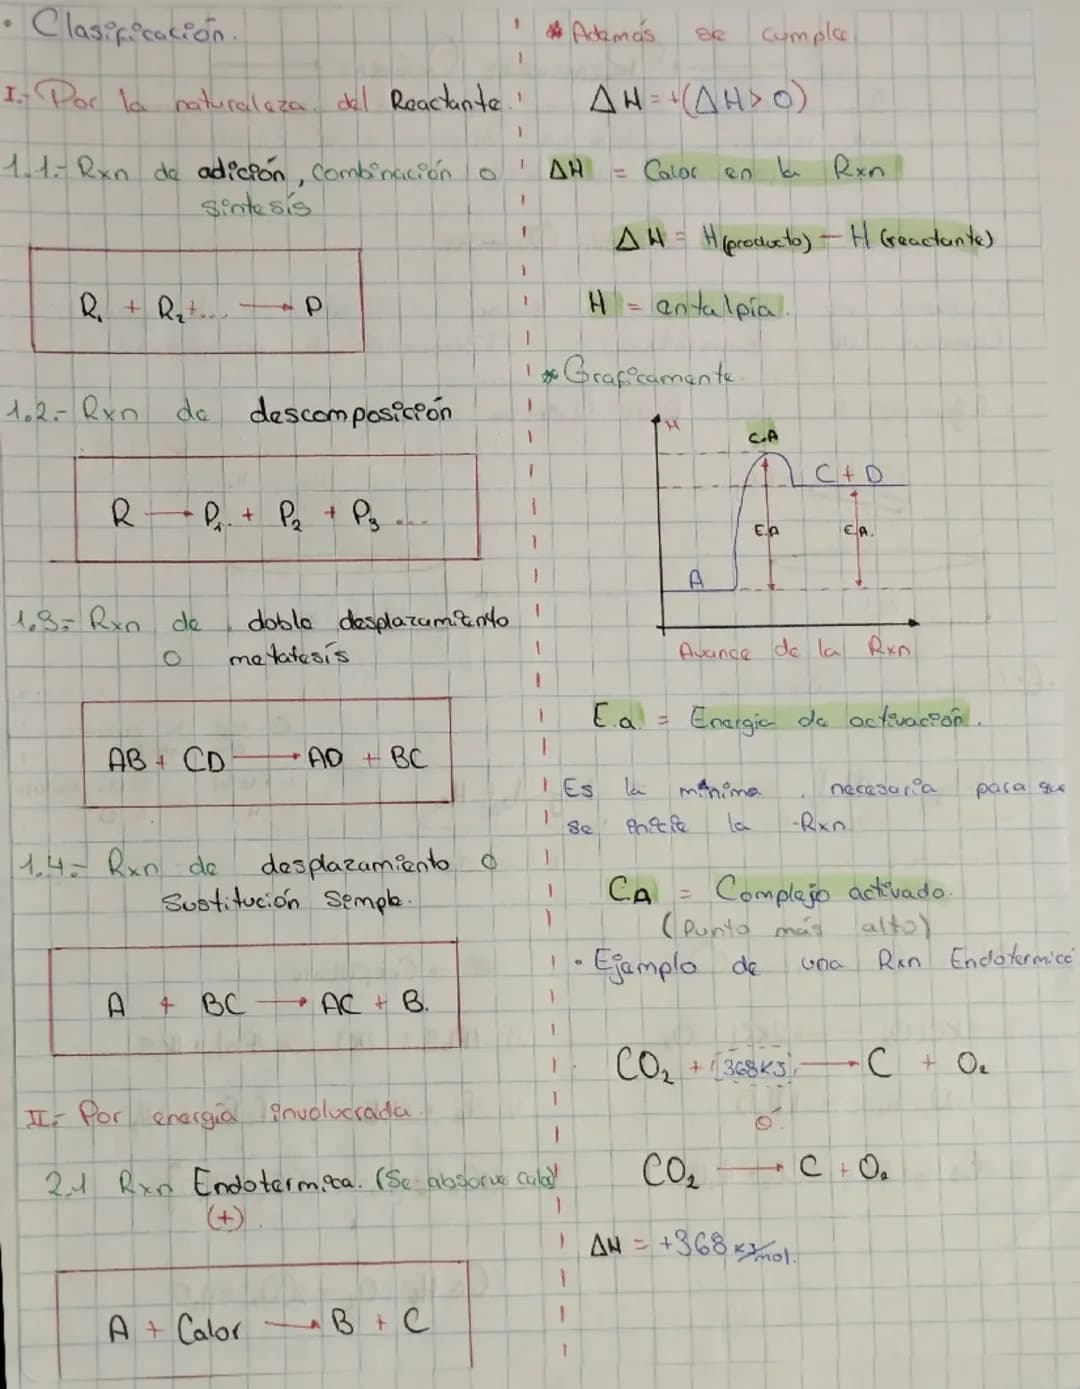 • Clasificación.
I.- Por la naturaleza del Reactante.
1.1.- Rxn de adición, combinación o
síntesís
R₁ + R₂ + ... → P
1.2.- Rxn de descomposición
R → P₁ + P₂ + P₃ ...
1.3.- Rxn de doble desplazamiento
o metatesís
AB + CD → AD + BC
1.4.- Rxn de desplazamiento o
Sustitución Simple.
A + BC → AC + B.
II.- Por energía involucrada
2.1 Rxn Endotermica. (Se absorve calor)
(+)
A + Calor → B + C
* Además se cumple
ΔH = +(ΔH > 0)
ΔH = Calor en la Rxn
ΔH = H(producto) - H(reactante)
H = entalpía.
* Graficamente.
H
C.A
C + D
E.A
E.A.
A
Avance de la Rxn
E.a = Energía de activación.
Es la mínima necesaria para que
se inicie la Rxn
CA = Complejo activado.
(Punto más alto)
• Ejemplo de una Rxn Endotermica
CO₂ + 368KJ → C + O₂
o
CO₂ → C + O₂
ΔH = +368 KJ/mol.